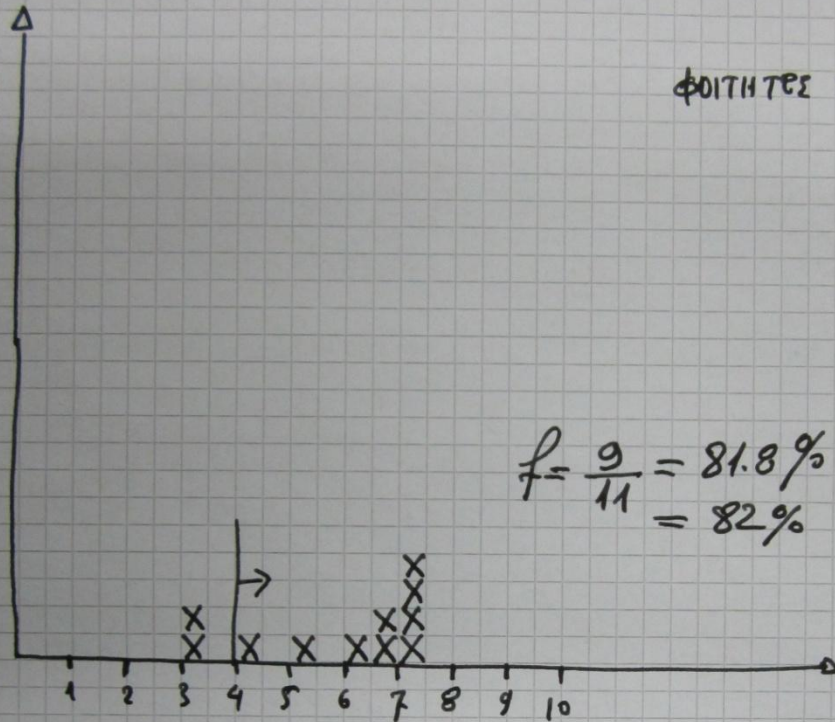 ΦΟΙΤΗΤΕΣ
f = 9/11 = 81.8%
= 82%
X
X
X X X
X X X X X X X
1 2 3 4 5 6 7 8 9 10